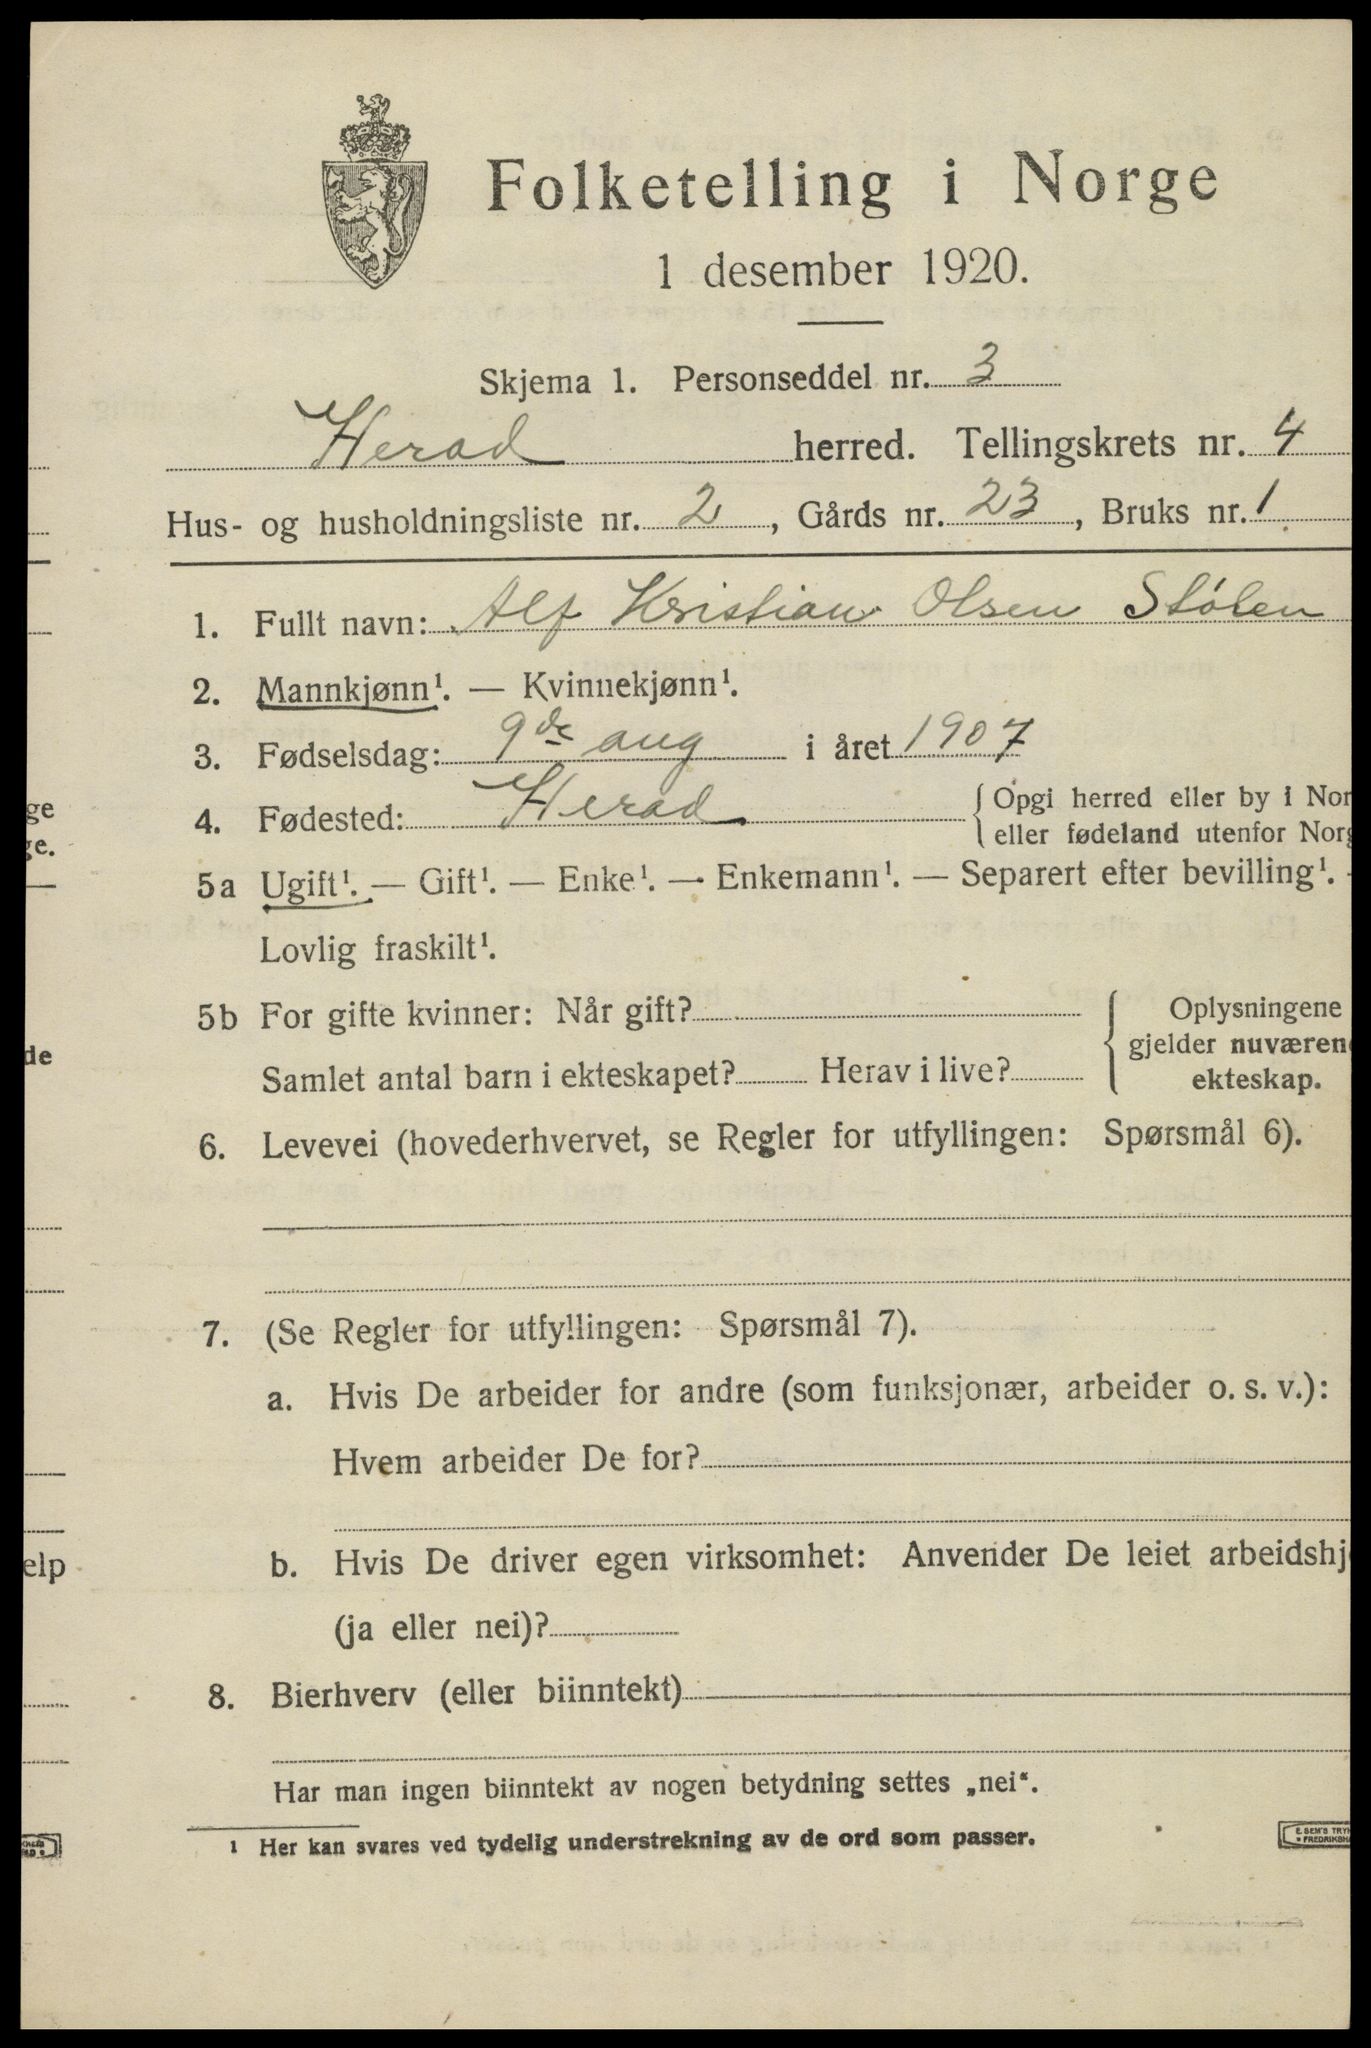 Folketelling i Norge
1 desember 1920.
Skjema 1. Personseddel nr. 3
Herad herred. Tellingskrets nr. 4
Hus- og husholdningsliste nr. 2, Gårds nr. 23, Bruks nr. 1
1. Fullt navn: Alf Kristian Olsen Stölen
2. Mannkjønn¹. — Kvinnekjønn¹.
3. Fødselsdag: 9de aug i året 1907
4. Fødested: Herad {Opgi herred eller by i Nor
eller fødeland utenfor Norg
5a Ugift¹. — Gift¹. — Enke¹. — Enkemann¹. — Separert efter bevilling¹. -
Lovlig fraskilt¹.
5b For gifte kvinner: Når gift? {Oplysningene
gjelder nuværend
Samlet antal barn i ekteskapet? Herav i live? ekteskap.
6. Levevei (hovederhvervet, se Regler for utfyllingen: Spørsmål 6).
7. (Se Regler for utfyllingen: Spørsmål 7).
a. Hvis De arbeider for andre (som funksjonær, arbeider o. s. v.):
Hvem arbeider De for?
b. Hvis De driver egen virksomhet: Anvender De leiet arbeidshj
(ja eller nei)?
8. Bierhverv (eller biinntekt)
Har man ingen biinntekt av nogen betydning settes „nei“.
¹ Her kan svares ved tydelig understrekning av de ord som passer.
E. SEM'S TRYK
FREDRIKSHA
ge
ge.
de
elp